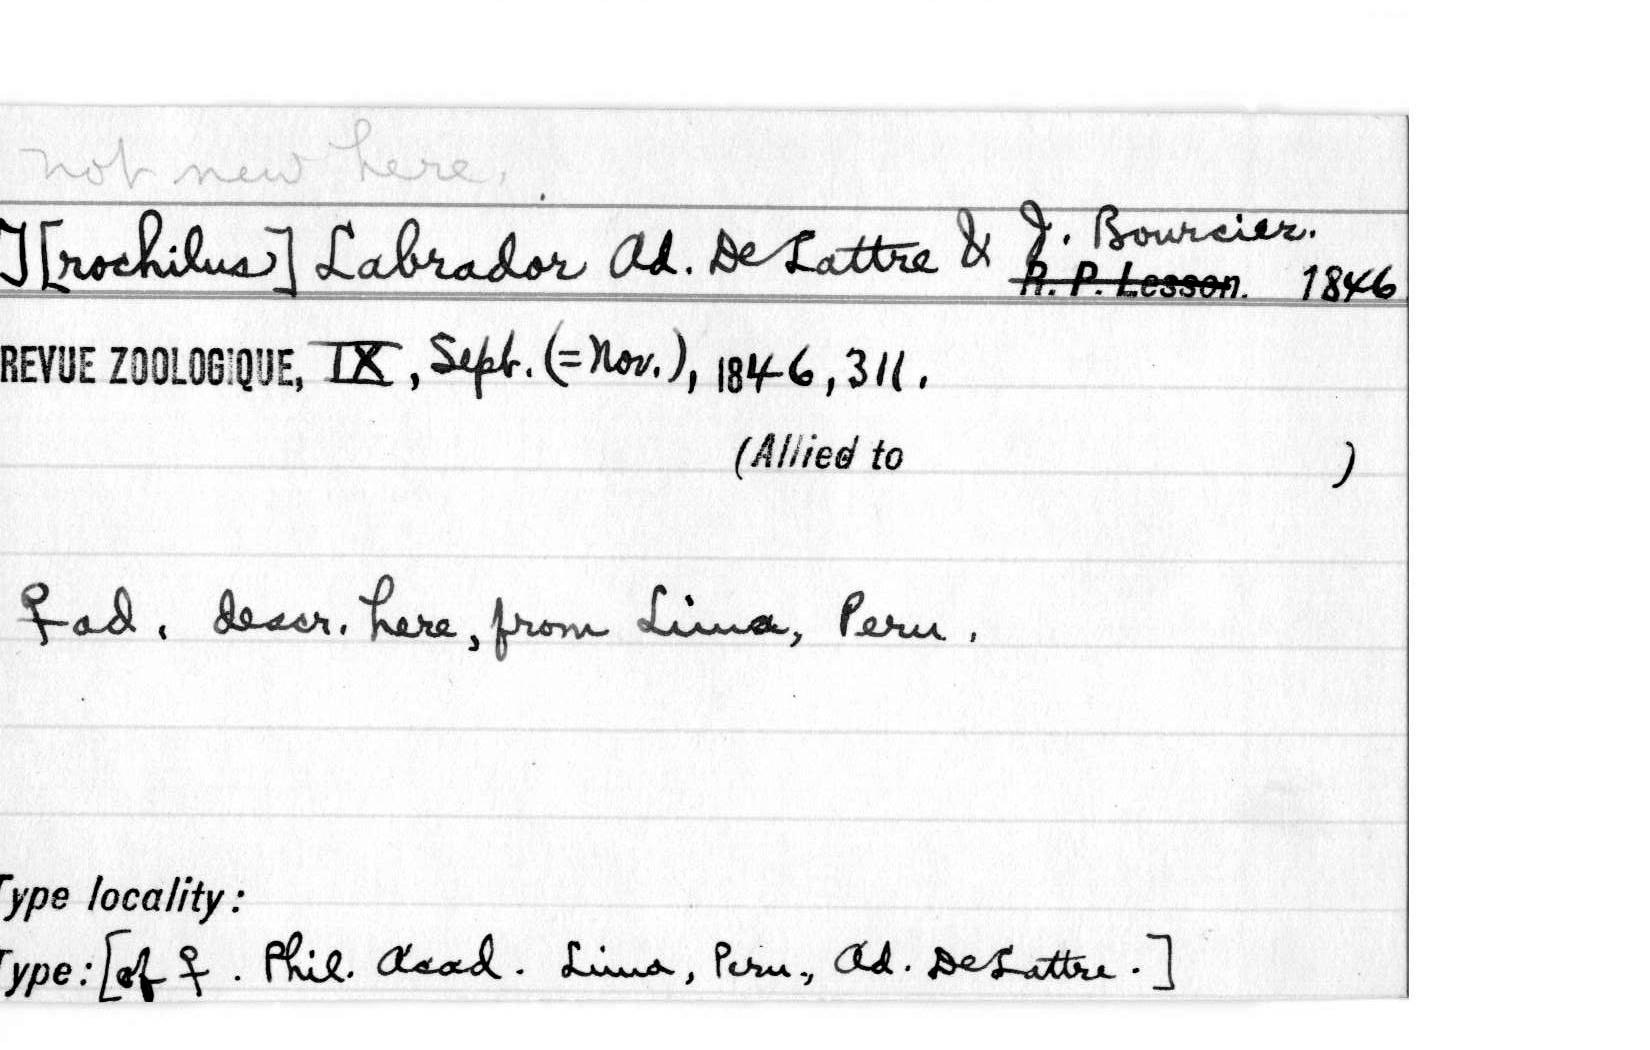 not new here.
T[rochilus] Labrador Ad. DeLattre & J. Bourcier.
R. P. Lesson. 1846
REVUE ZOOLOGIQUE, IX, Sept. (=Nov.), 1846, 311.
(Allied to )
♀ ad. descr. here, from Lima, Peru.
Type locality:
Type: [of ♀. Phil. Acad. Lima, Peru., Ad. DeLattre.]